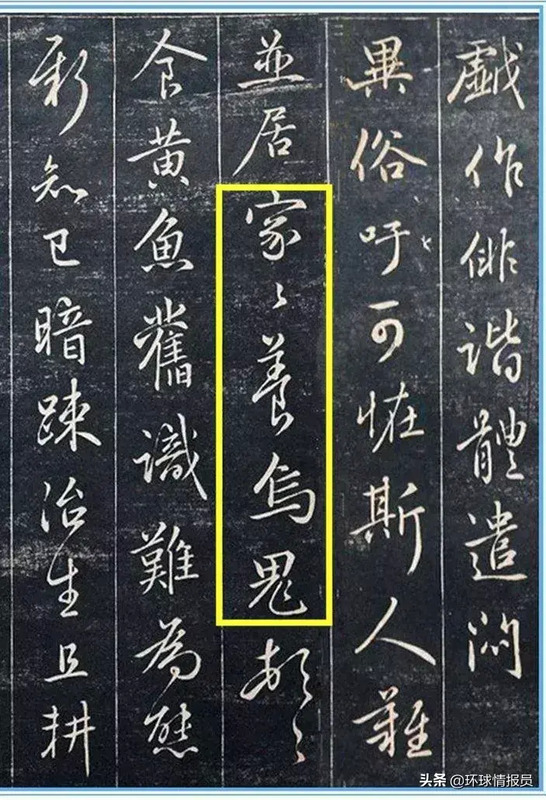 戱作俳諧體遣悶
異俗吁可恠斯人難
並居家〻養烏鬼頓〻
食黄魚舊識難為態
新知已暗踈治生且耕
头条 @环球情报员